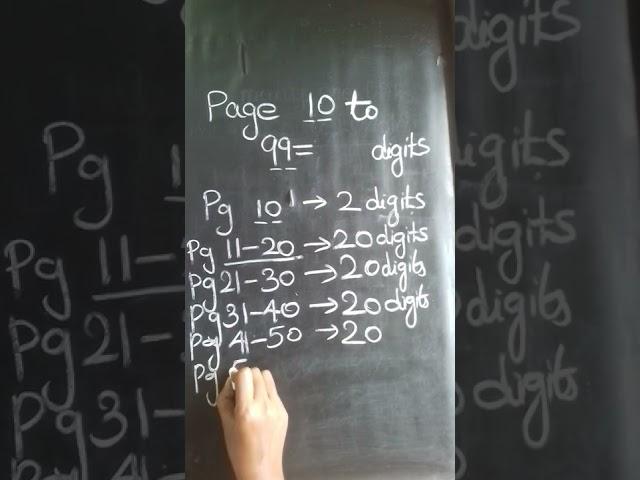 Page 10 to
99= digits
Pg 10 → 2 digits
Pg 11-20 → 20 digits
Pg 21-30 → 20 digits
Pg 31-40 → 20 digits
Pg 41-50 → 20
Pg 5